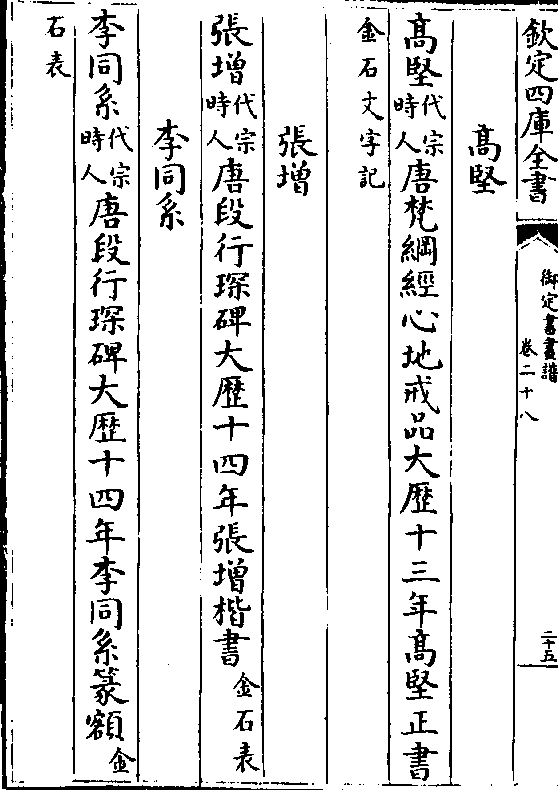 欽定四庫全書
御定書畫譜
卷二十八
二十五
高堅
高堅代宗時人唐梵綱經心地戒品大歴十三年高堅正書
金石文字記
張增
張增代宗時人唐段行琛碑大歴十四年張增楷書金石表
李同系
李同系代宗時人唐段行琛碑大歴十四年李同系篆額金
石表